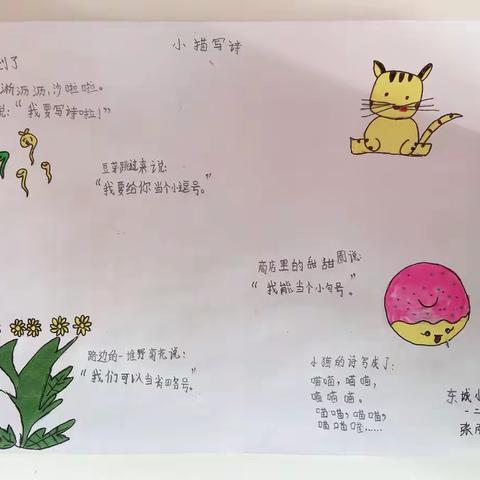 小猫写诗
到了
淅沥沥,沙啦啦。
说:“我要写诗啦!”
豆芽跳过来说:
“我要给你当个小逗号。”
商店里的甜甜圈说:
“我能当个小句号。”
路边的一堆野菊花说:
“我们可以当省略号。”
小猫的诗写成了:
喵喵,喵喵,
喵喵喵。
喵喵,喵喵,
喵喵喵……
东城小
一二
张雨